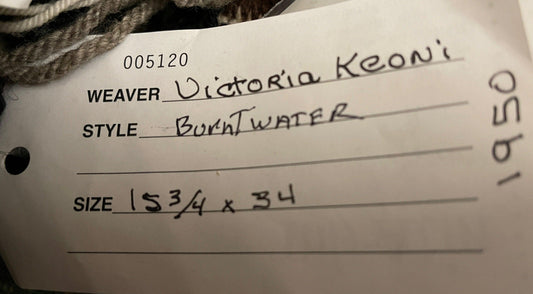 005120
WEAVER Victoria Keoni
STYLE BurnTWATER
SIZE 15 3/4 x 34
1950